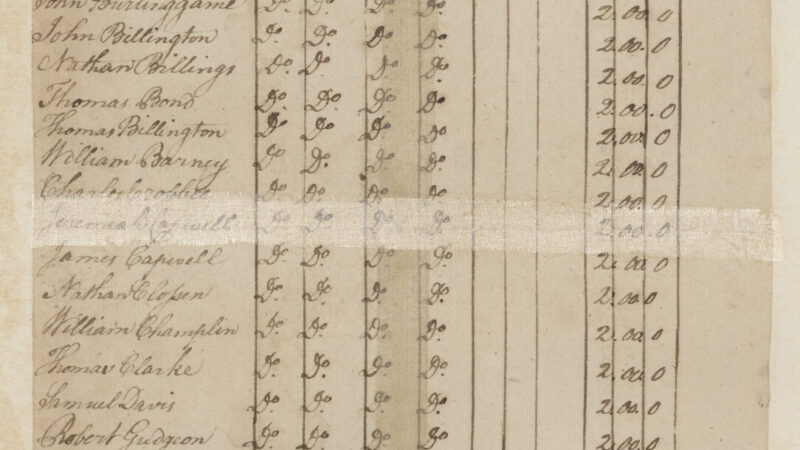 John Burlinggame Do. Do. Do. Do. 2.00.0
John Billington Do. Do. Do. Do. 2.00.0
Nathan Billings Do. Do. Do. Do. 2.00.0
Thomas Bond Do. Do. Do. Do. 2.00.0
Thomas Billington Do. Do. Do. Do. 2.00.0
William Barney Do. Do. Do. Do. 2.00.0
Charles Do. Do. Do. Do. 2.00.0
Jeremiah Capwell Do. Do. Do. Do. 2.00.0
James Capwell Do. Do. Do. Do. 2.00.0
Nathan Clossen Do. Do. Do. Do. 2.00.0
William Champlin Do. Do. Do. Do. 2.00.0
Thomas Clarke Do. Do. Do. Do. 2.00.0
Samuel Davis Do. Do. Do. Do. 2.00.0
Robert Gudgeon Do. Do. Do. Do. 2.00.0